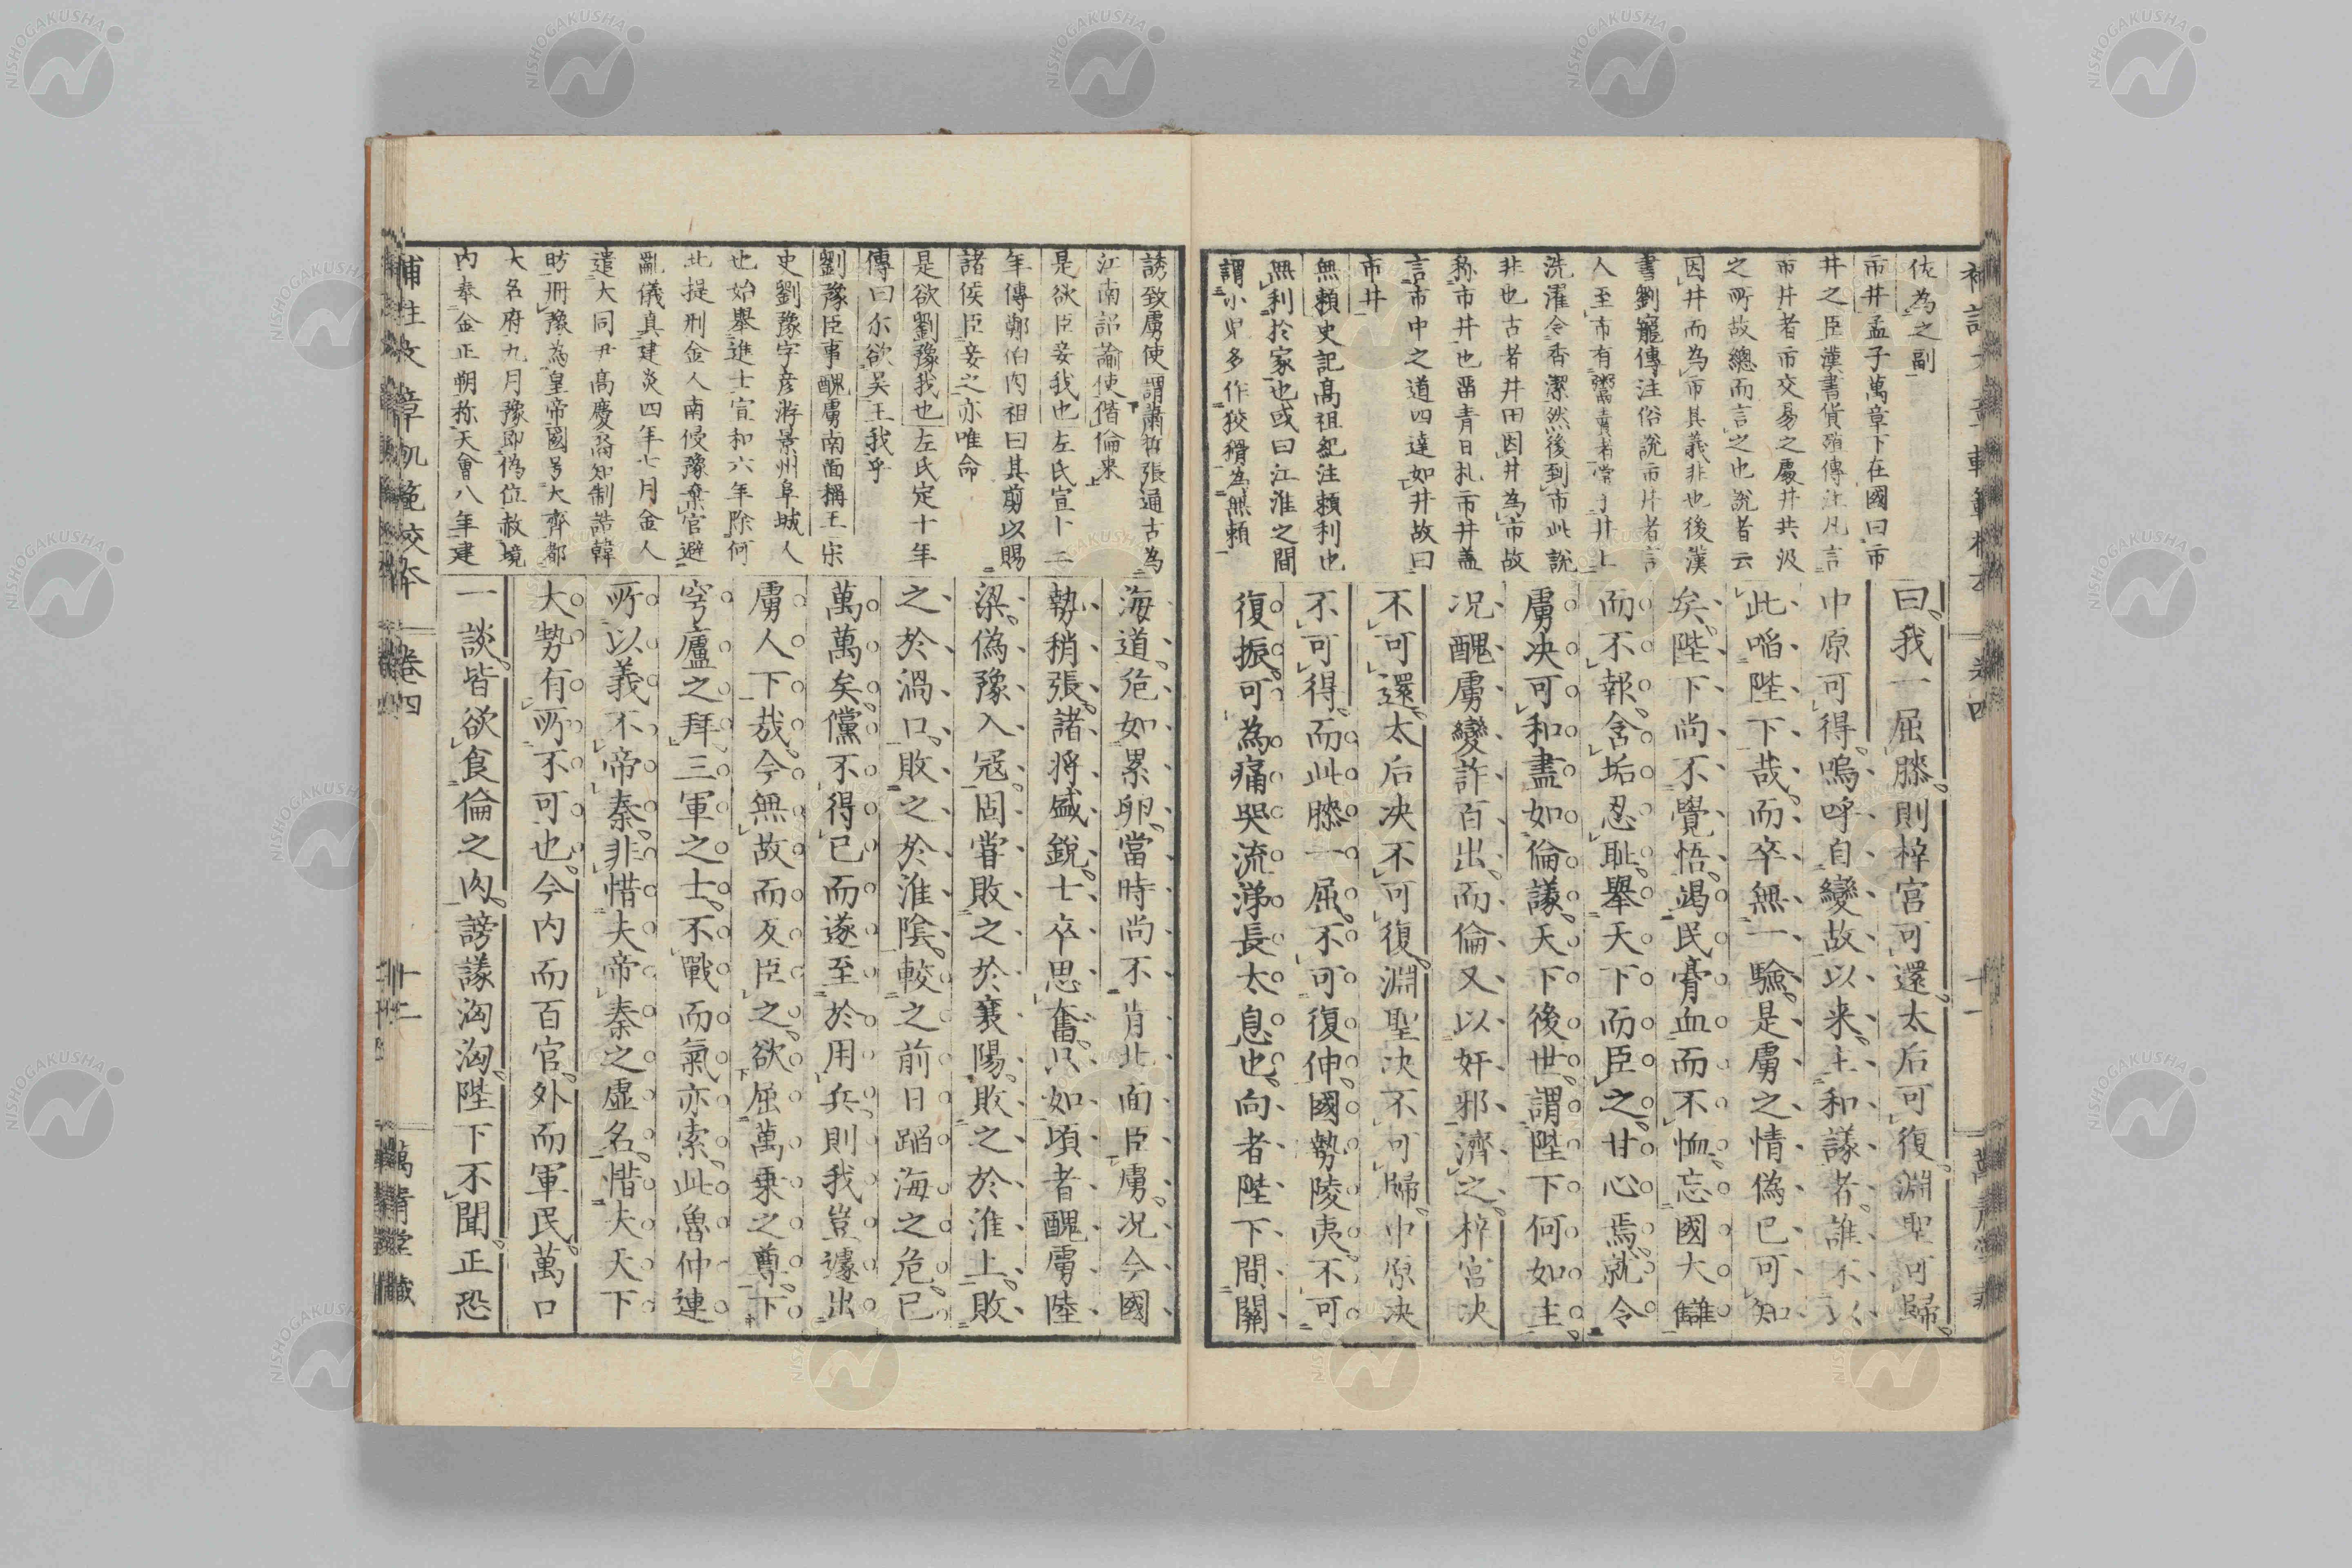 佐為之副
市井孟子萬章下在國曰市
井之臣漢書貨殖傳注凡言
市井者市交易之處井共汲
之所故總而言之也說者云
因井而為市其義非也後漢
書劉寵傳注俗說市井者言
人至市有鬻賣者當于井上
洗濯令香潔然後到市此說
非也古者井田因井為市故
称市井也畱青日札市井蓋
言市中之道四達如井故曰
市井
無賴史記高祖紀注賴利也
無利於家也或曰江淮之間
謂小兒多作狡猾為無賴
曰我一屈膝則梓宮可還太后可復淵聖可歸
中原可得嗚呼自變故以来主和議者誰不以
此啗陛下哉而卒無一驗是虜之情偽已可知
矣陛下尚不覺悟竭民膏血而不恤忘國大讎
而不報含垢忍耻舉天下而臣之甘心焉就令
虜决可和盡如倫議天下後世謂陛下何如主
况醜虜變詐百出而倫又以奸邪濟之梓宮决
不可還太后决不可復淵聖决不可歸中原决
不可得而此膝一屈不可復伸國勢陵夷不可
復振可為痛哭流涕長太息也向者陛下間關
誘致虜使謂蕭哲張通古為
江南詔諭使偕倫来
是欲臣妾我也左氏宣十二
年傳鄭伯肉袒曰其翦以賜
諸侯臣妾之亦唯命
是欲劉豫我也左氏定十年
傳曰尓欲吴王我乎
劉豫臣事醜虜南面稱王宋
史劉豫字彦游景州阜城人
也始舉進士宣和六年除河
北提刑金人南侵豫棄官避
亂儀真建炎四年七月金人
遣大同尹高慶裔知制誥韓
昉冊豫為皇帝國号大齊都
大名府九月豫即偽位赦境
内奉金正朔称天會八年建
海道危如累卵當時尚不肯北面臣虜况今國
勢稍張諸将盛銳士卒思奮只如頃者醜虜陸
梁偽豫入寇固嘗敗之於襄陽敗之於淮上敗
之於渦口敗之於淮陰較之前日蹈海之危已
萬萬矣儻不得已而遂至於用兵則我豈遽出
虜人下哉今無故而反臣之欲屈萬乗之尊下
穹廬之拜三軍之士不戰而氣亦索此魯仲連
所以義不帝秦非惜夫帝秦之虛名惜夫天下
大勢有所不可也今内而百官外而軍民萬口
一談皆欲食倫之肉謗議洶洶陛下不聞正恐
補註文章軌範校本 卷四 十二 萬青堂藏